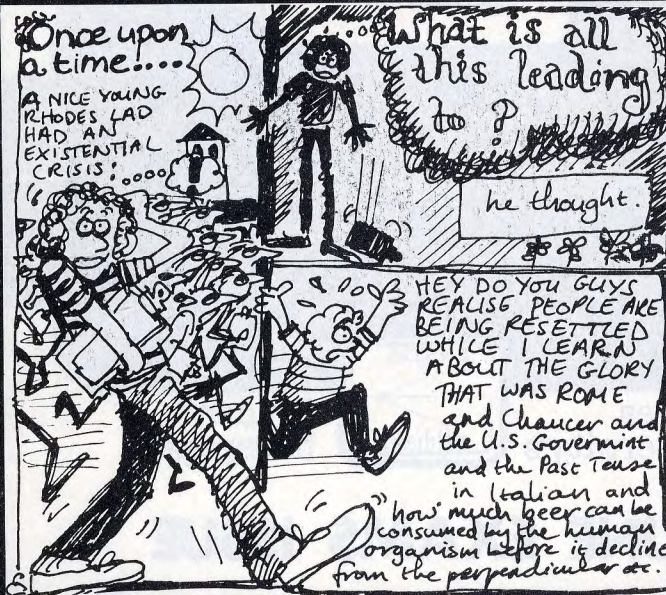 Once upon
a time!....
A NICE YOUNG
RHODES LAD
HAD AN
EXISTENTIAL
CRISIS:....
!
What is all
this leading
to ?
he thought.
HEY DO YOU GUYS
REALISE PEOPLE ARE
BEING RESETTLED
WHILE I LEARN
ABOUT THE GLORY
THAT WAS ROME
and Chaucer and
the U.S. Governmint
and the Past Tense
in Italian and
how much beer can be
consumed by the human
organism before it decline
from the perpendicular etc.